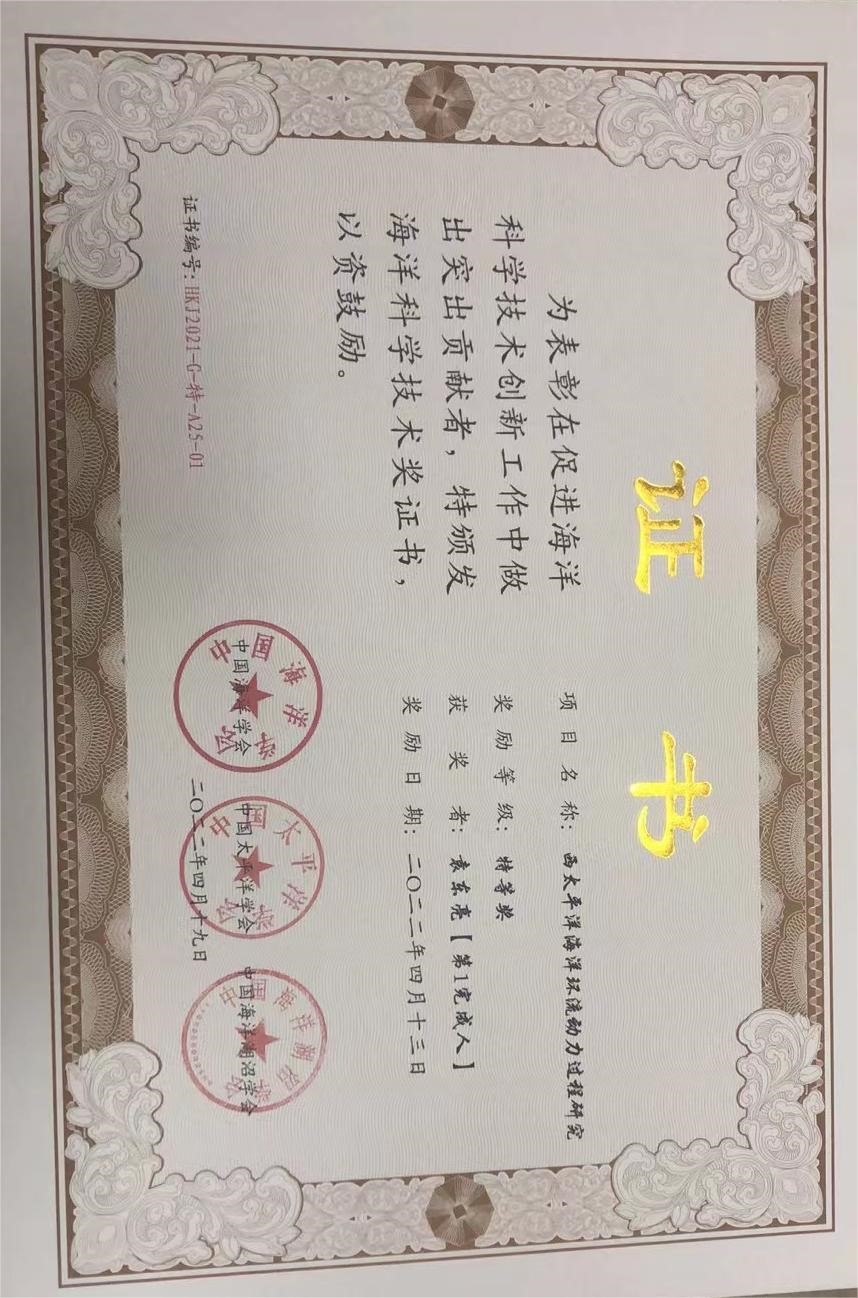 证 书
为表彰在促进海洋
科学技术创新工作中做
出突出贡献者，特颁发
海洋科学技术奖证书，
以资鼓励。
项目名称：西太平洋海洋环流动力过程研究
奖励等级：特等奖
获奖者：袁东亮【第1完成人】
奖励日期：二〇二二年四月十三日
证书编号：HKJ2021-G-特-A25-01
中国海洋学会
中国太平洋学会
中国海洋湖沼学会
二〇二二年四月十九日
中国海洋学会
中国太平洋学会
中国海洋湖沼学会